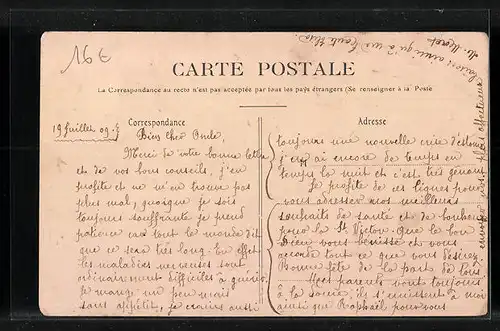 16€
CARTE POSTALE
La Correspondance au recto n'est pas acceptée par tous les pays étrangers (Se renseigner à la Poste
Correspondance
19 Juillet 09.
Bien cher Oncle,
Merci de votre bonne lettre
et de vos bons conseils, j'en
profite et ne m'en trouve pas
plus mal, quoique je sois
toujours souffrante je prend
patience car tout le monde dit
que ce sera très long. En effet
les maladies nerveuses sont
ordinairement difficiles à guérir.
Je mange un peu mais
sans appétit, je crains aussi
Adresse
toujours une nouvelle crise
j'en ai encore de temps en
temps la nuit et c'est très gênant
Je profite de ces lignes pour
vous adresser nos meilleurs
souhaits de santé et de bonheur
pour la St Victor. Que le bon
Dieu vous bénisse et vous
accorde tout ce que vous désirez.
Bonne fête de la part de tous
Mes parents vont toujours
à la
ainsi que Raphaël pour vous
envoyer nos plus affectueux
baisers ainsi qu'à ma tante